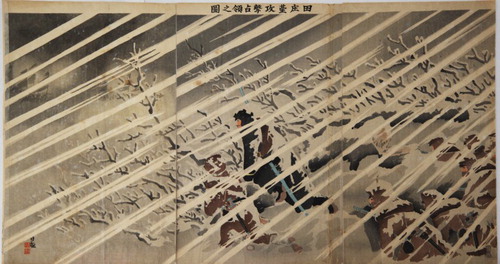 田庄臺攻撃占領之圖